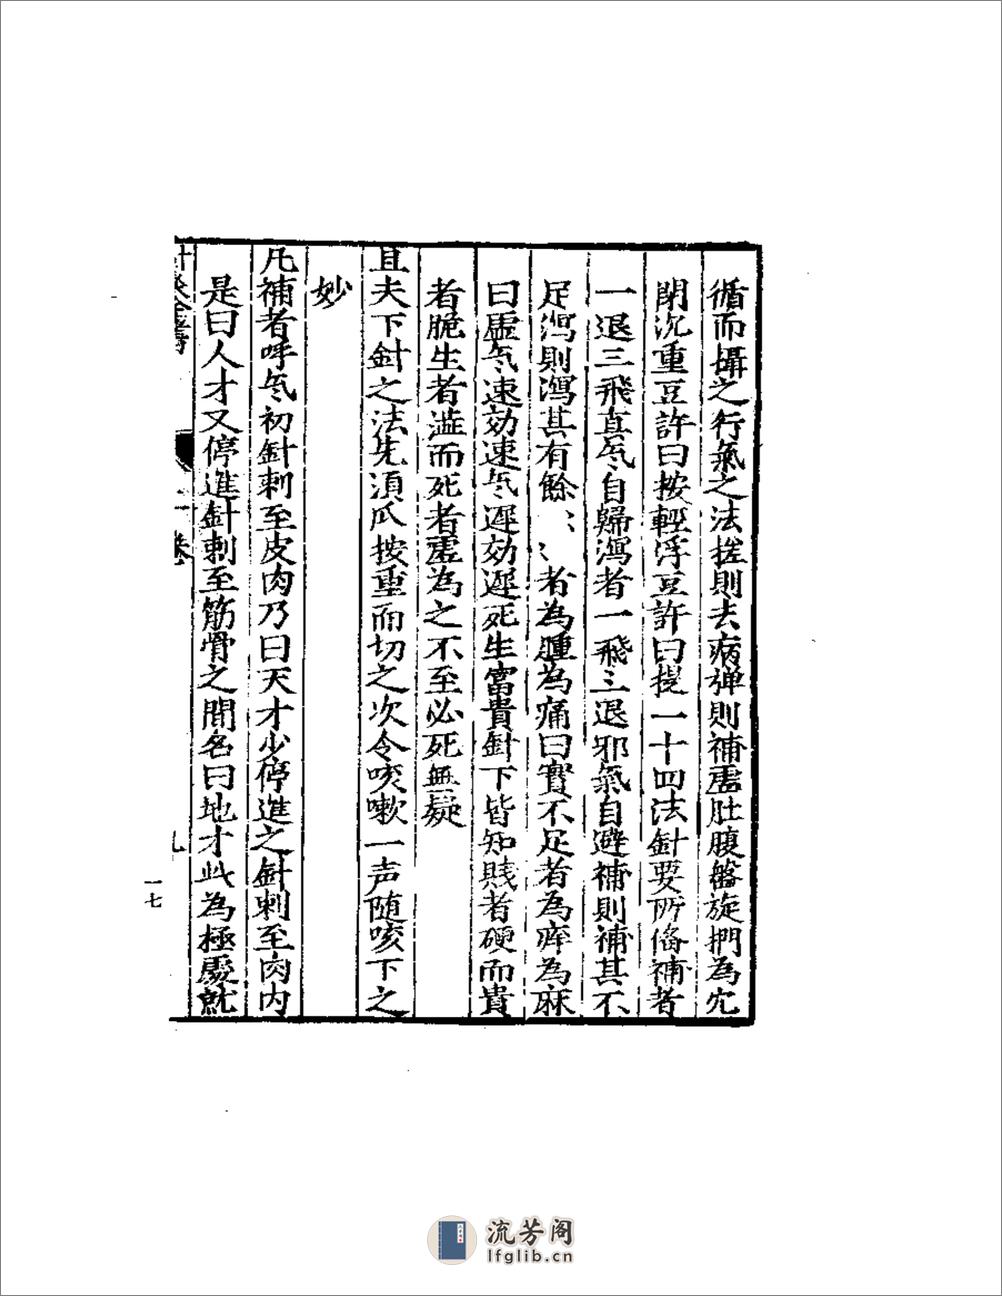 循而攝之行氣之法搓則去病弹則補虛肚腹盤旋捫為穴
閉沉重豆許曰按輕浮豆許曰提一十四法針要所俻補者
一退三飛真気自歸瀉者一飛三退邪氣自避補則補其不
足瀉則瀉其有餘者為腫為痛曰實不足者為痒為麻
曰虛気速効速気遲効遲死生富貴針下皆知賤者硬而貴
者脆生者澁而死者虛為之不至必死無疑
且夫下針之法先湏爪按重而切之次令咳嗽一声随咳下之
妙
凡補者呼気初針刺至皮肉乃曰天才少停進之針刺至肉内
是曰人才又停進針刺至筋骨之間名曰地才此為極處就
針灸全書
一卷
九
一七
流芳阁
lfglib.cn